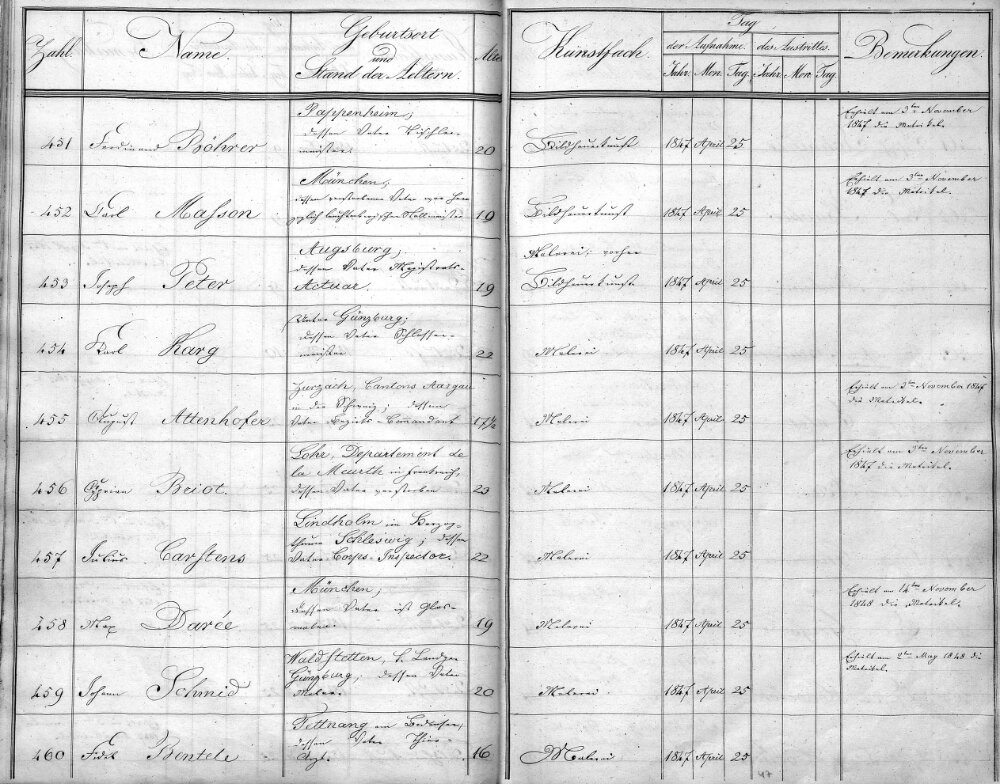 Zahl. Name. Geburtsort und Stand der Aeltern. Alter Kunstfach. Tag der Aufnahme. des Austrittes. Bemerkungen.
Jahr. Mon. Tag. Jahr. Mon. Tag.
Pappenheim, Erhielt am 3ten November
451 Ferdinand Böhrer dessen Vater Tischler- 1847 die Matrikel.
meister. 20 Bildhauerkunst 1847 April 25
München, Erhielt am 3ten November
452 Karl Masson dessen verstorbener Vater 1847 die Matrikel.
19 Bildhauerkunst 1847 April 25
Augsburg, Malerei, vorher
453 Joseph Peter dessen Vater Magistrats- Bildhauerkunst 1847 April 25
Actuar. 19
Unter Günzburg,
454 Karl Karg dessen Vater Schlosser-
meister 22 Malerei 1847 April 25
Zurzach, Cantons Aargau Erhielt am 3ten November 1847
in der Schweiz; dessen die Matrikel.
455 August Attenhofer. Vater Bezirks-Comandant 17½ Malerei 1847 April 25
Lohr, Departement de Erhielt am 3ten November
la Meurthe in Frankreich, 1847 die Matrikel.
456 Cyprian Beiot. dessen Vater verstorben 23 Malerei 1847 April 25
Lindholm im Herzog-
thum Schleswig; dessen
457 Julius Carstens Vater Inspector. 22 Malerei 1847 April 25
München, Erhielt am 14ten November
dessen Vater ist Glas- 1848 die Matrikel.
458 Max Darée maler. 19 Malerei 1847 April 25
Waldstetten, k. Landger. Erhielt am 2ten May 1848 die
Günzburg; dessen Vater Matrikel.
459 Johann Schmid Maler. 20 Malerei 1847 April 25
Tettnang am Bodensee,
dessen Vater Thier-
460 Fidel Bentele Arzt. 16 Malerei 1847 April 25
47